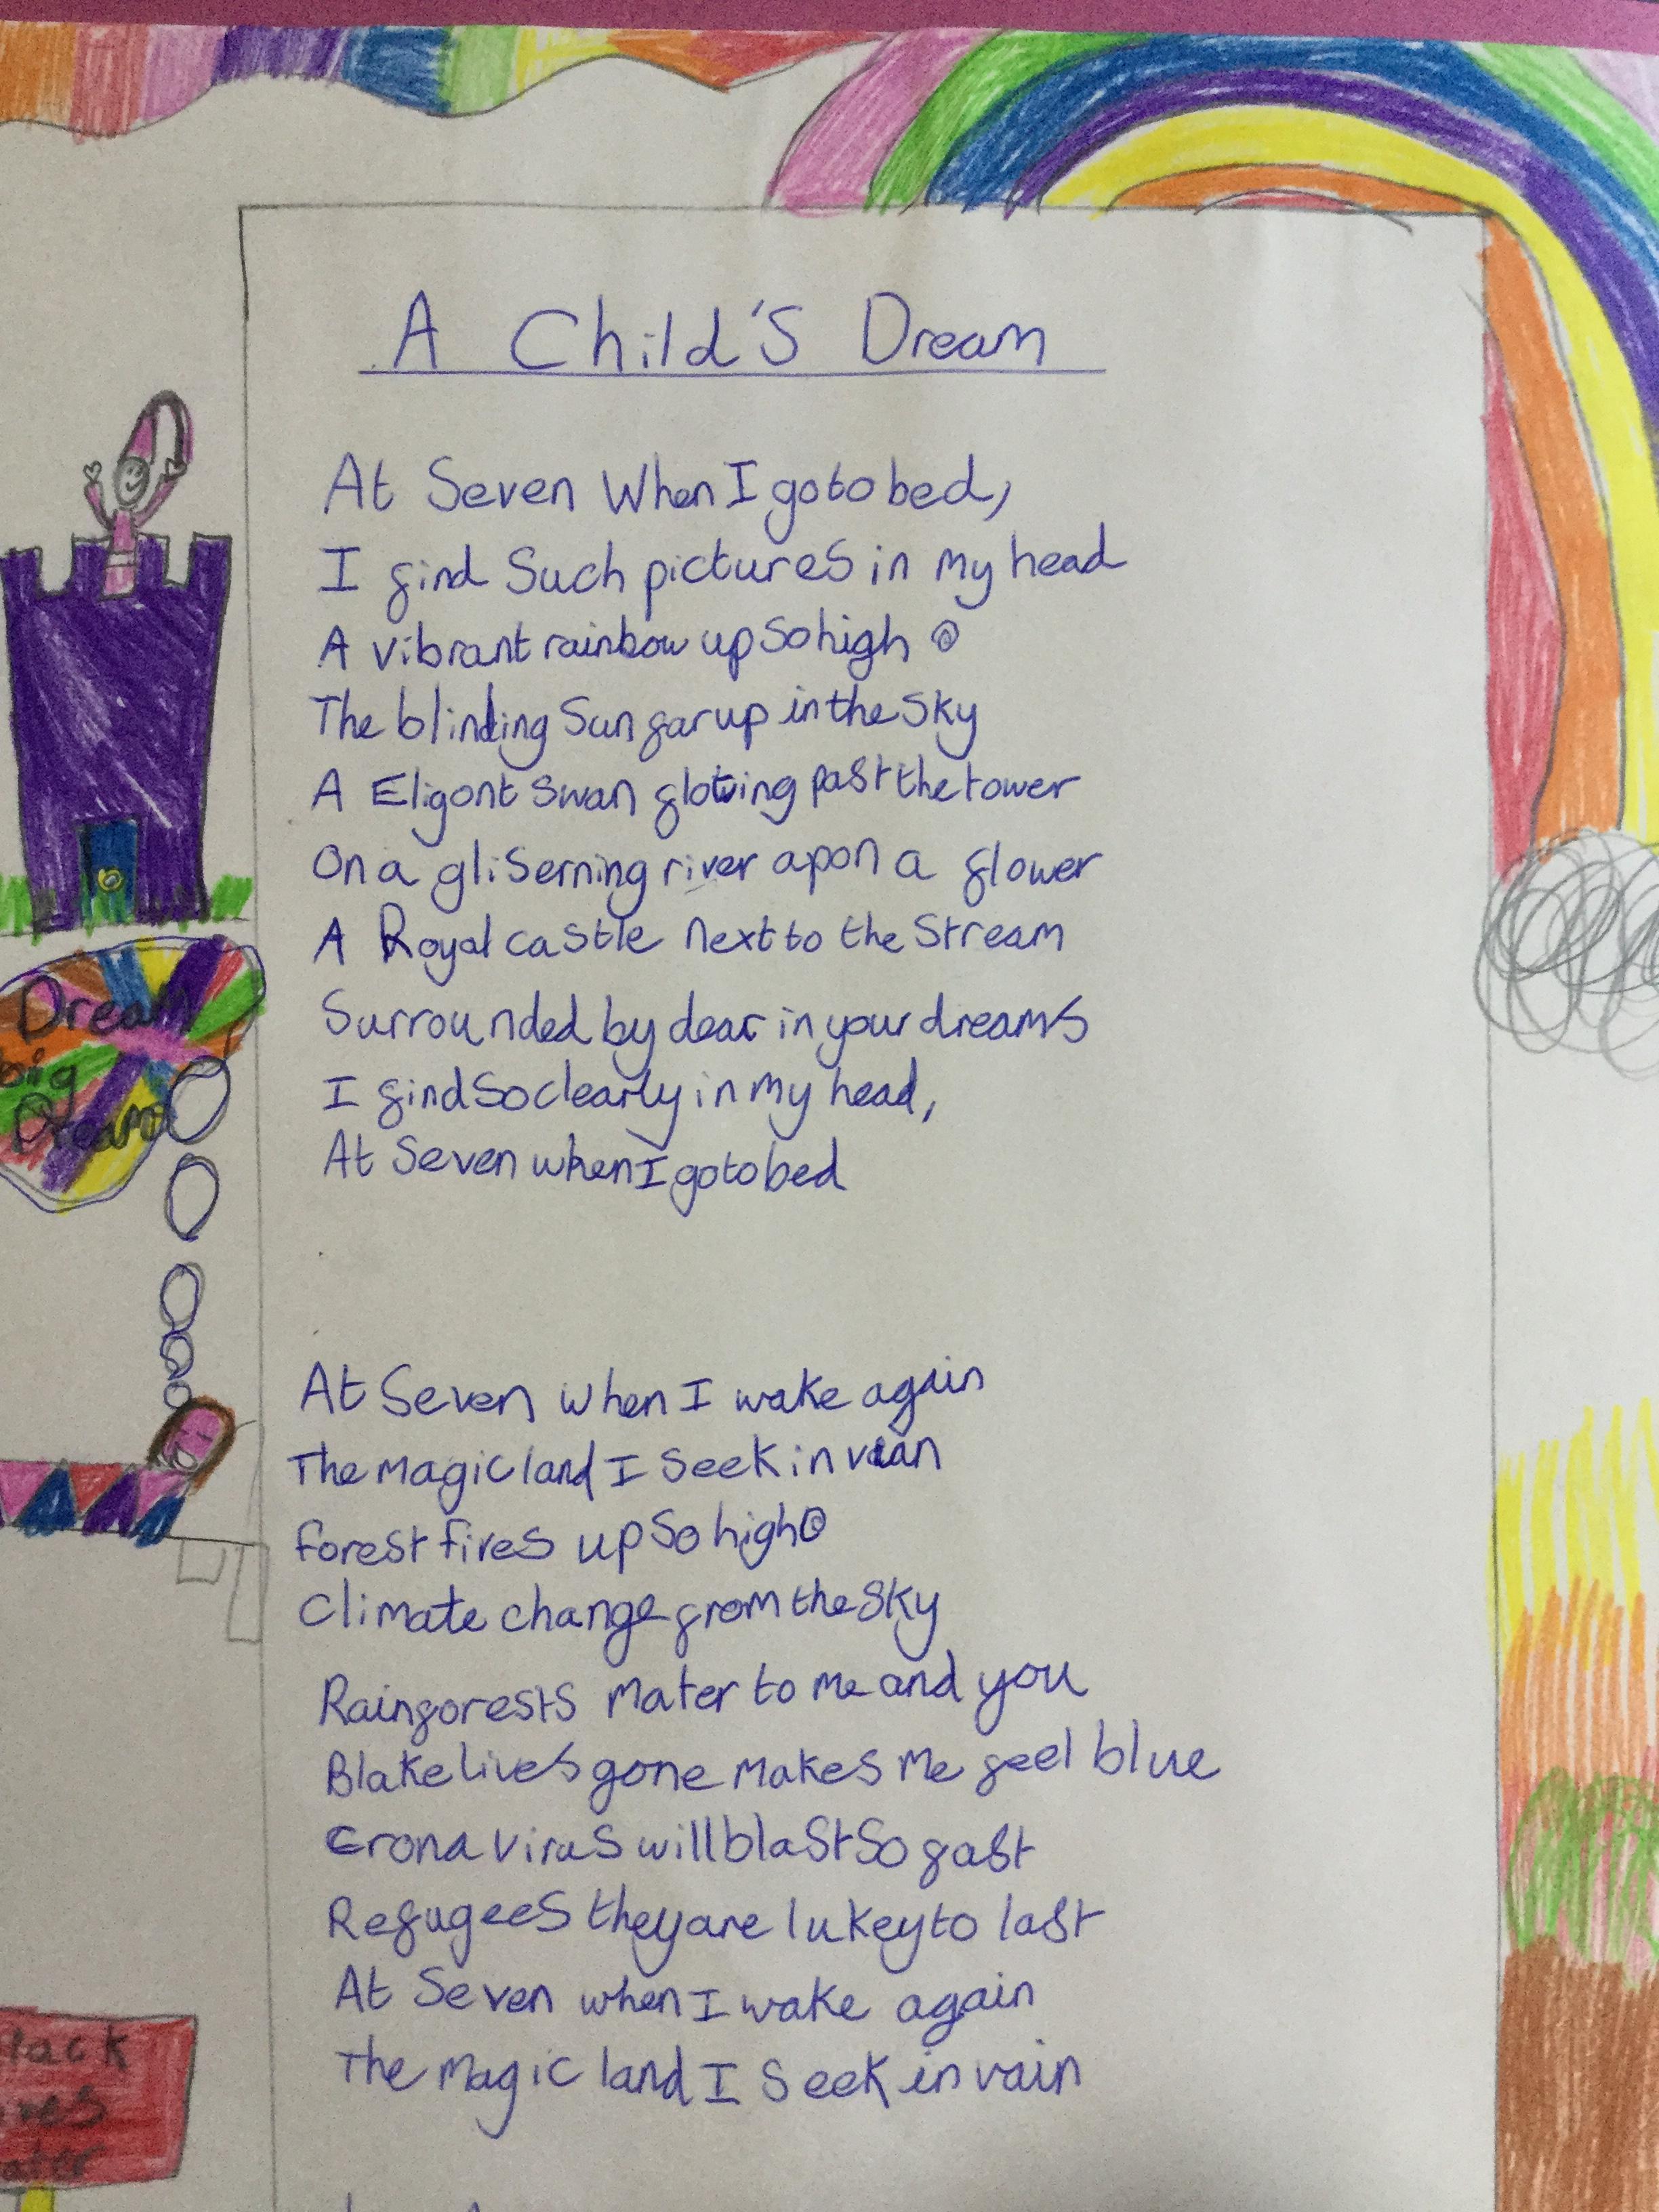 A Child's Dream
At Seven When I go to bed,
I find Such pictures in my head
A vibrant rainbow up so high
The blinding Sun far up in the sky
A Eligont swan floting past the tower
On a gliserning river apon a flower
A Royal castle next to the Stream
Surrounded by dear in your dreams
I find so clearly in my head,
At Seven when I go to bed
Dream
big
Dream
At Seven when I wake again
The magic land I seek in vain
forest fires up so high
Climate change from the sky
Rainforests mater to me and you
Blake lives gone makes me feel blue
Crona virus will blast so fast
Refugees they are lukey to last
At Seven when I wake again
The magic land I seek in vain
lack
ives
ater